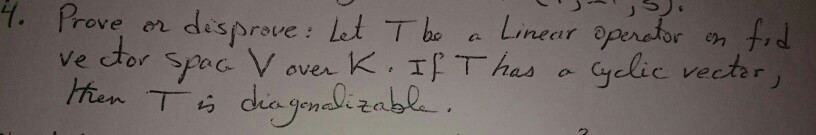 4. Prove or disprove: Let T be a Linear operator on f.d
vector spac V over K. If T has a cyclic vector,
then T is diagonalizable.